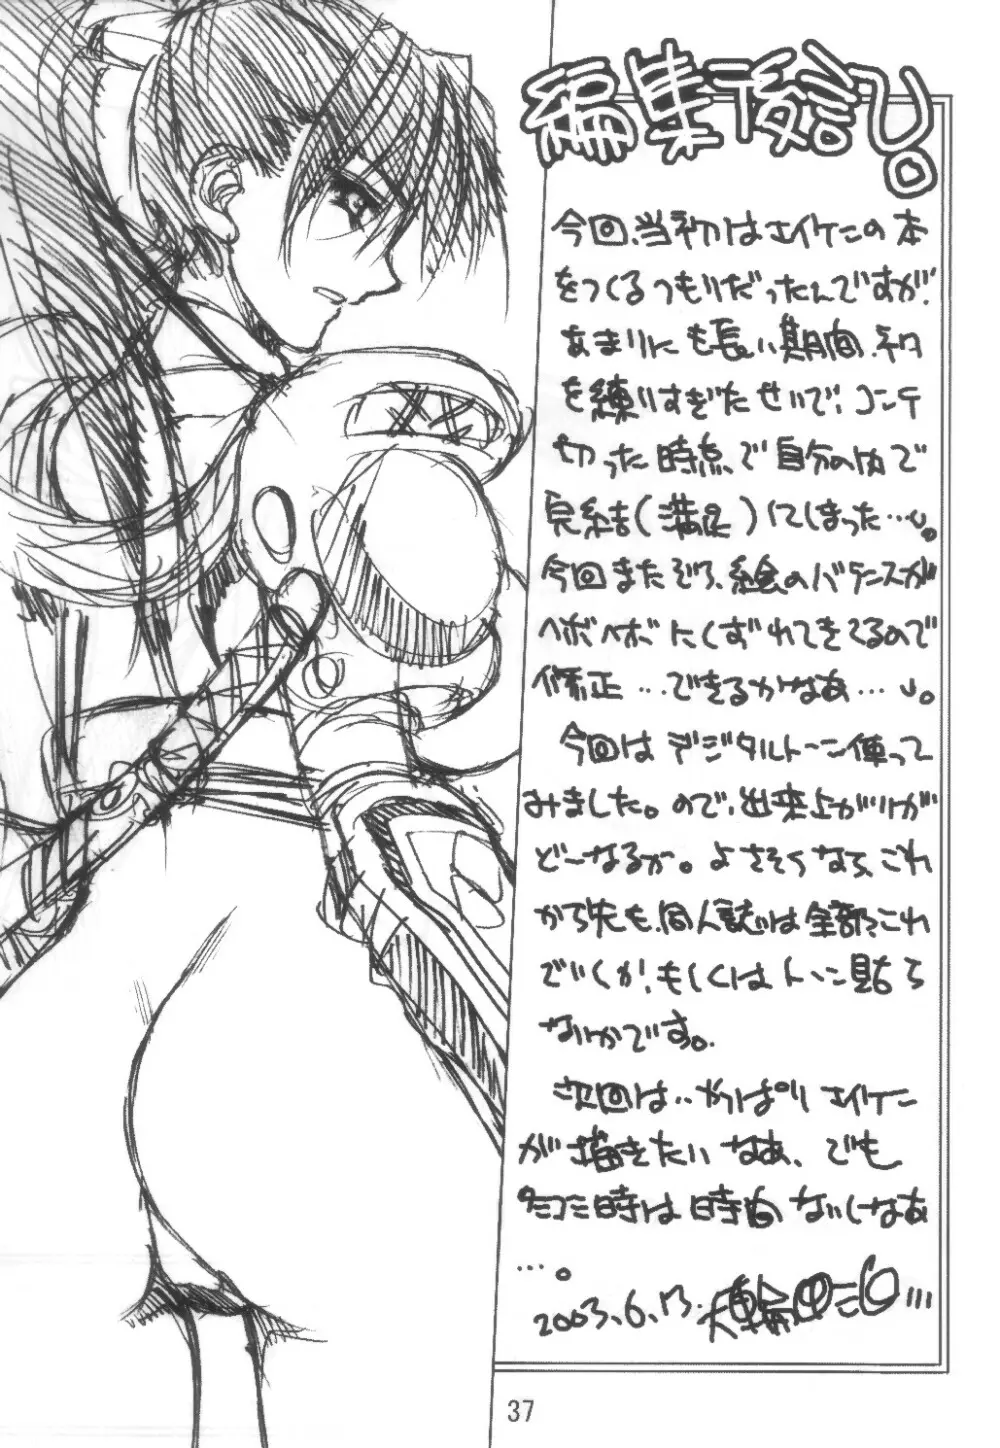 編集後記。
今回、当初はエイケンの本
をつくるつもりだったんですが、
あまりにも長い期間、ネタ
を練りすぎたせいで、コンテ
切った時点で自分の内で
完結(満足)にてしまった…。
今回またぞろ、絵のバランスが
ヘボヘボにくずれてきてるので
修正…できるかなぁ…。
今回はデジタルトーン使って
みました。ので、出来上がりが
どーなるか。よさそうなら、これ
から先も、同人誌は全部これ
でいくか、もしくはトーン貼ら
ないかです。
次回は‥やっぱりエイケン
が描きたいなあ、でも
時は時間ないしなあ
…。
2003.6.13.
37